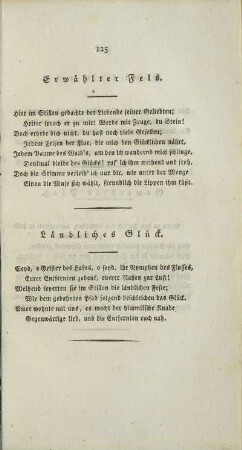 125
Erwählter Fels.
Hier im Stillen gedachte der Liebende seiner Geliebten;
Heiter sprach er zu mir: Werde mir Zeuge, du Stein!
Doch erhebe dich nicht, du hast noch viele Gesellen;
Jedem Felsen der Flur, die mich den Glücklichen nährt,
Jedem Baume des Walds, um den ich wandernd mich schlinge,
Denkmal bleibe des Glücks! ruf' ich ihm weihend und froh.
Doch die Stimme verleih' ich nur dir, wie unter der Menge
Einen die Muse sich wählt, freundlich die Lippen ihm küßt.
Ländliches Glück.
Seyd, o Geister des Hains, o seyd, ihr Nymphen des Flusses,
Eurer Entfernten gedenk, eueren Nahen zur Lust!
Weihend feyerten sie im Stillen die ländlichen Feste;
Wir dem gebahnten Pfad folgend beschleichen das Glück.
Amor wohne mit uns, es macht der himmlische Knabe
Gegenwärtige lieb, und die Entfernten euch nah.